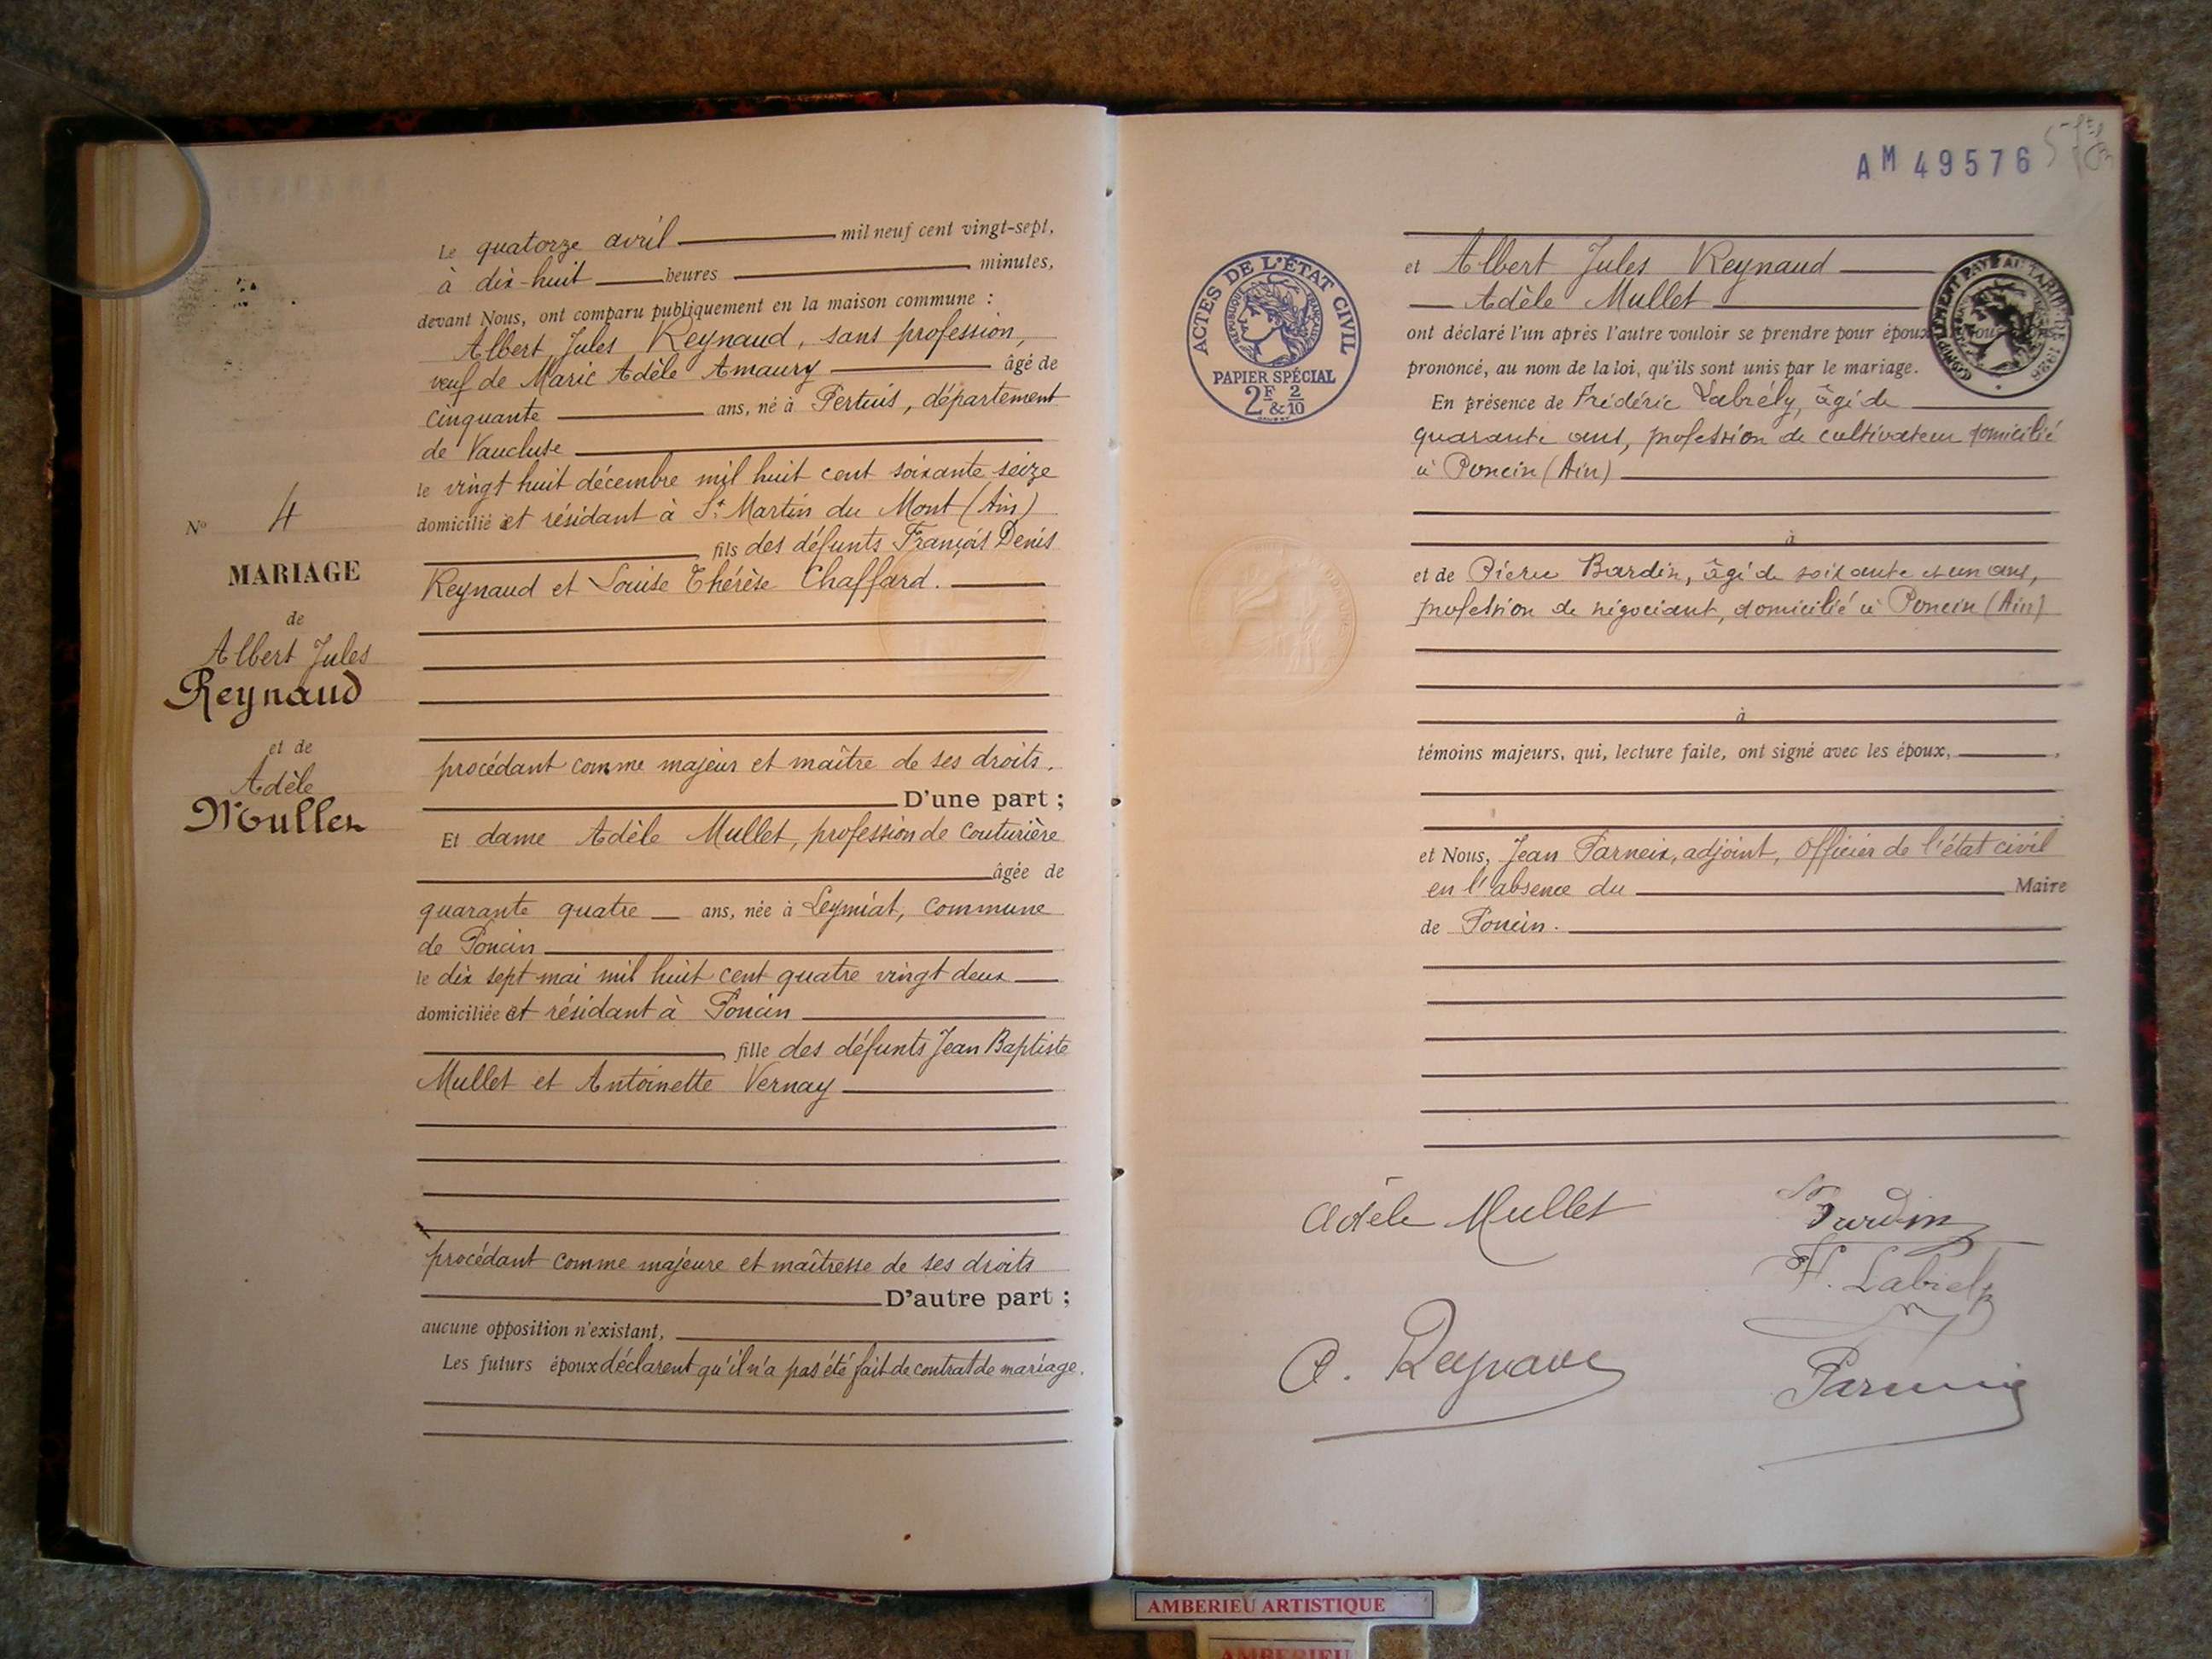 Le quatorze avril mil neuf cent vingt-sept,
à dix-huit heures minutes,
devant Nous, ont comparu publiquement en la maison commune :
Albert Jules Reynaud, sans profession,
veuf de Marie Adèle Amaury âgé de
cinquante ans, né à Pertuis, département
de Vaucluse
le vingt huit décembre mil huit cent soixante seize
domicilié et résidant à St Martin du Mont (Ain)
fils des défunts François Denis
Reynaud et Louise Thérèse Chaffard.
procédant comme majeur et maître de ses droits.
D'une part ;
Et dame Adèle Mullet, profession de couturière
âgée de
quarante quatre ans, née à Leymiat, commune
de Poncin
le dix sept mai mil huit cent quatre vingt deux
domiciliée et résidant à Poncin
fille des défunts Jean Baptiste
Mullet et Antoinette Vernay
procédant comme majeure et maîtresse de ses droits
D'autre part ;
aucune opposition n'existant,
Les futurs époux déclarent qu'il n'a pas été fait de contrat de mariage.
No 4
MARIAGE
de
Albert Jules
Reynaud
et de
Adèle
Mullet
AM 49576
ACTES DE L'ÉTAT CIVIL
RÉPUBLIQUE FRANÇAISE
PAPIER SPÉCIAL
2F & 2/10
et Albert Jules Reynaud
Adèle Mullet
ont déclaré l'un après l'autre vouloir se prendre pour époux
prononcé, au nom de la loi, qu'ils sont unis par le mariage.
En présence de Frédéric Labrély, âgé de
quarante ans, profession de cultivateur domicilié
à Poncin (Ain)
à
et de Pierre Bardin, âgé de soixante et un ans,
profession de négociant, domicilié à Poncin (Ain)
à
témoins majeurs, qui, lecture faite, ont signé avec les époux,
et Nous, Jean Parneix, adjoint, officier de l'état civil
en l'absence du Maire
de Poncin.
Adèle Mullet
Bardin
F. Labrély
A. Reynaud
Parneix
AMBERIEU ARTISTIQUE
AMBERIEU